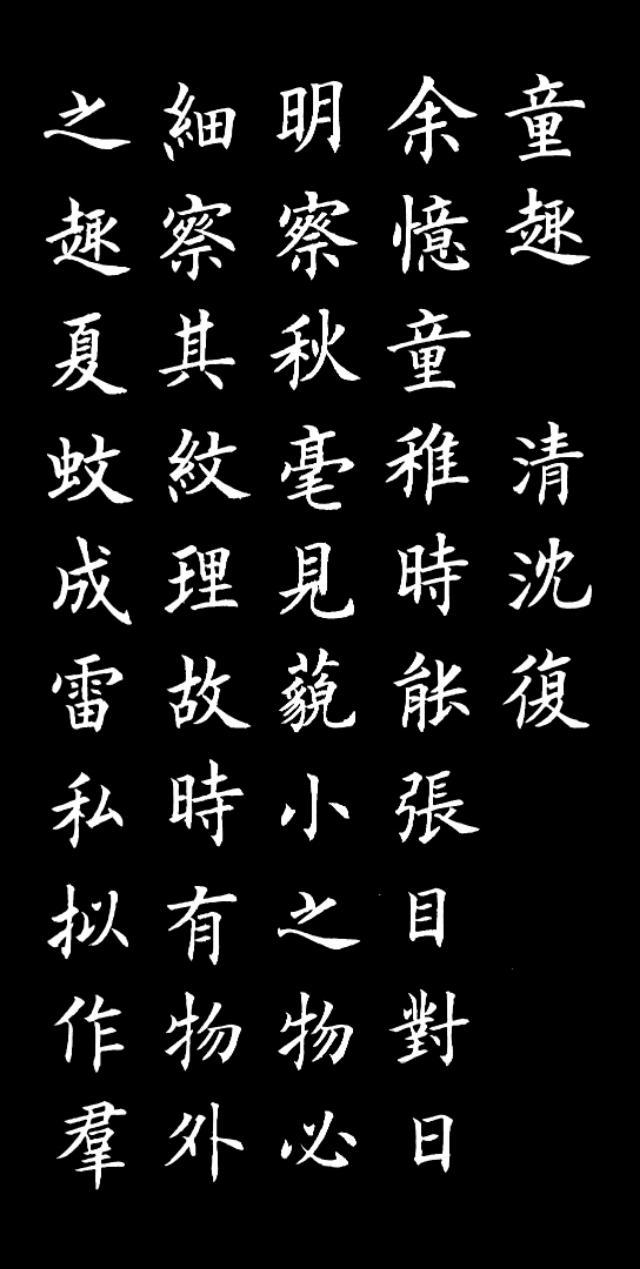 童趣 清沈復
余憶童稚時能張目對日
明察秋毫見藐小之物必
細察其紋理故時有物外
之趣夏蚊成雷私拟作羣